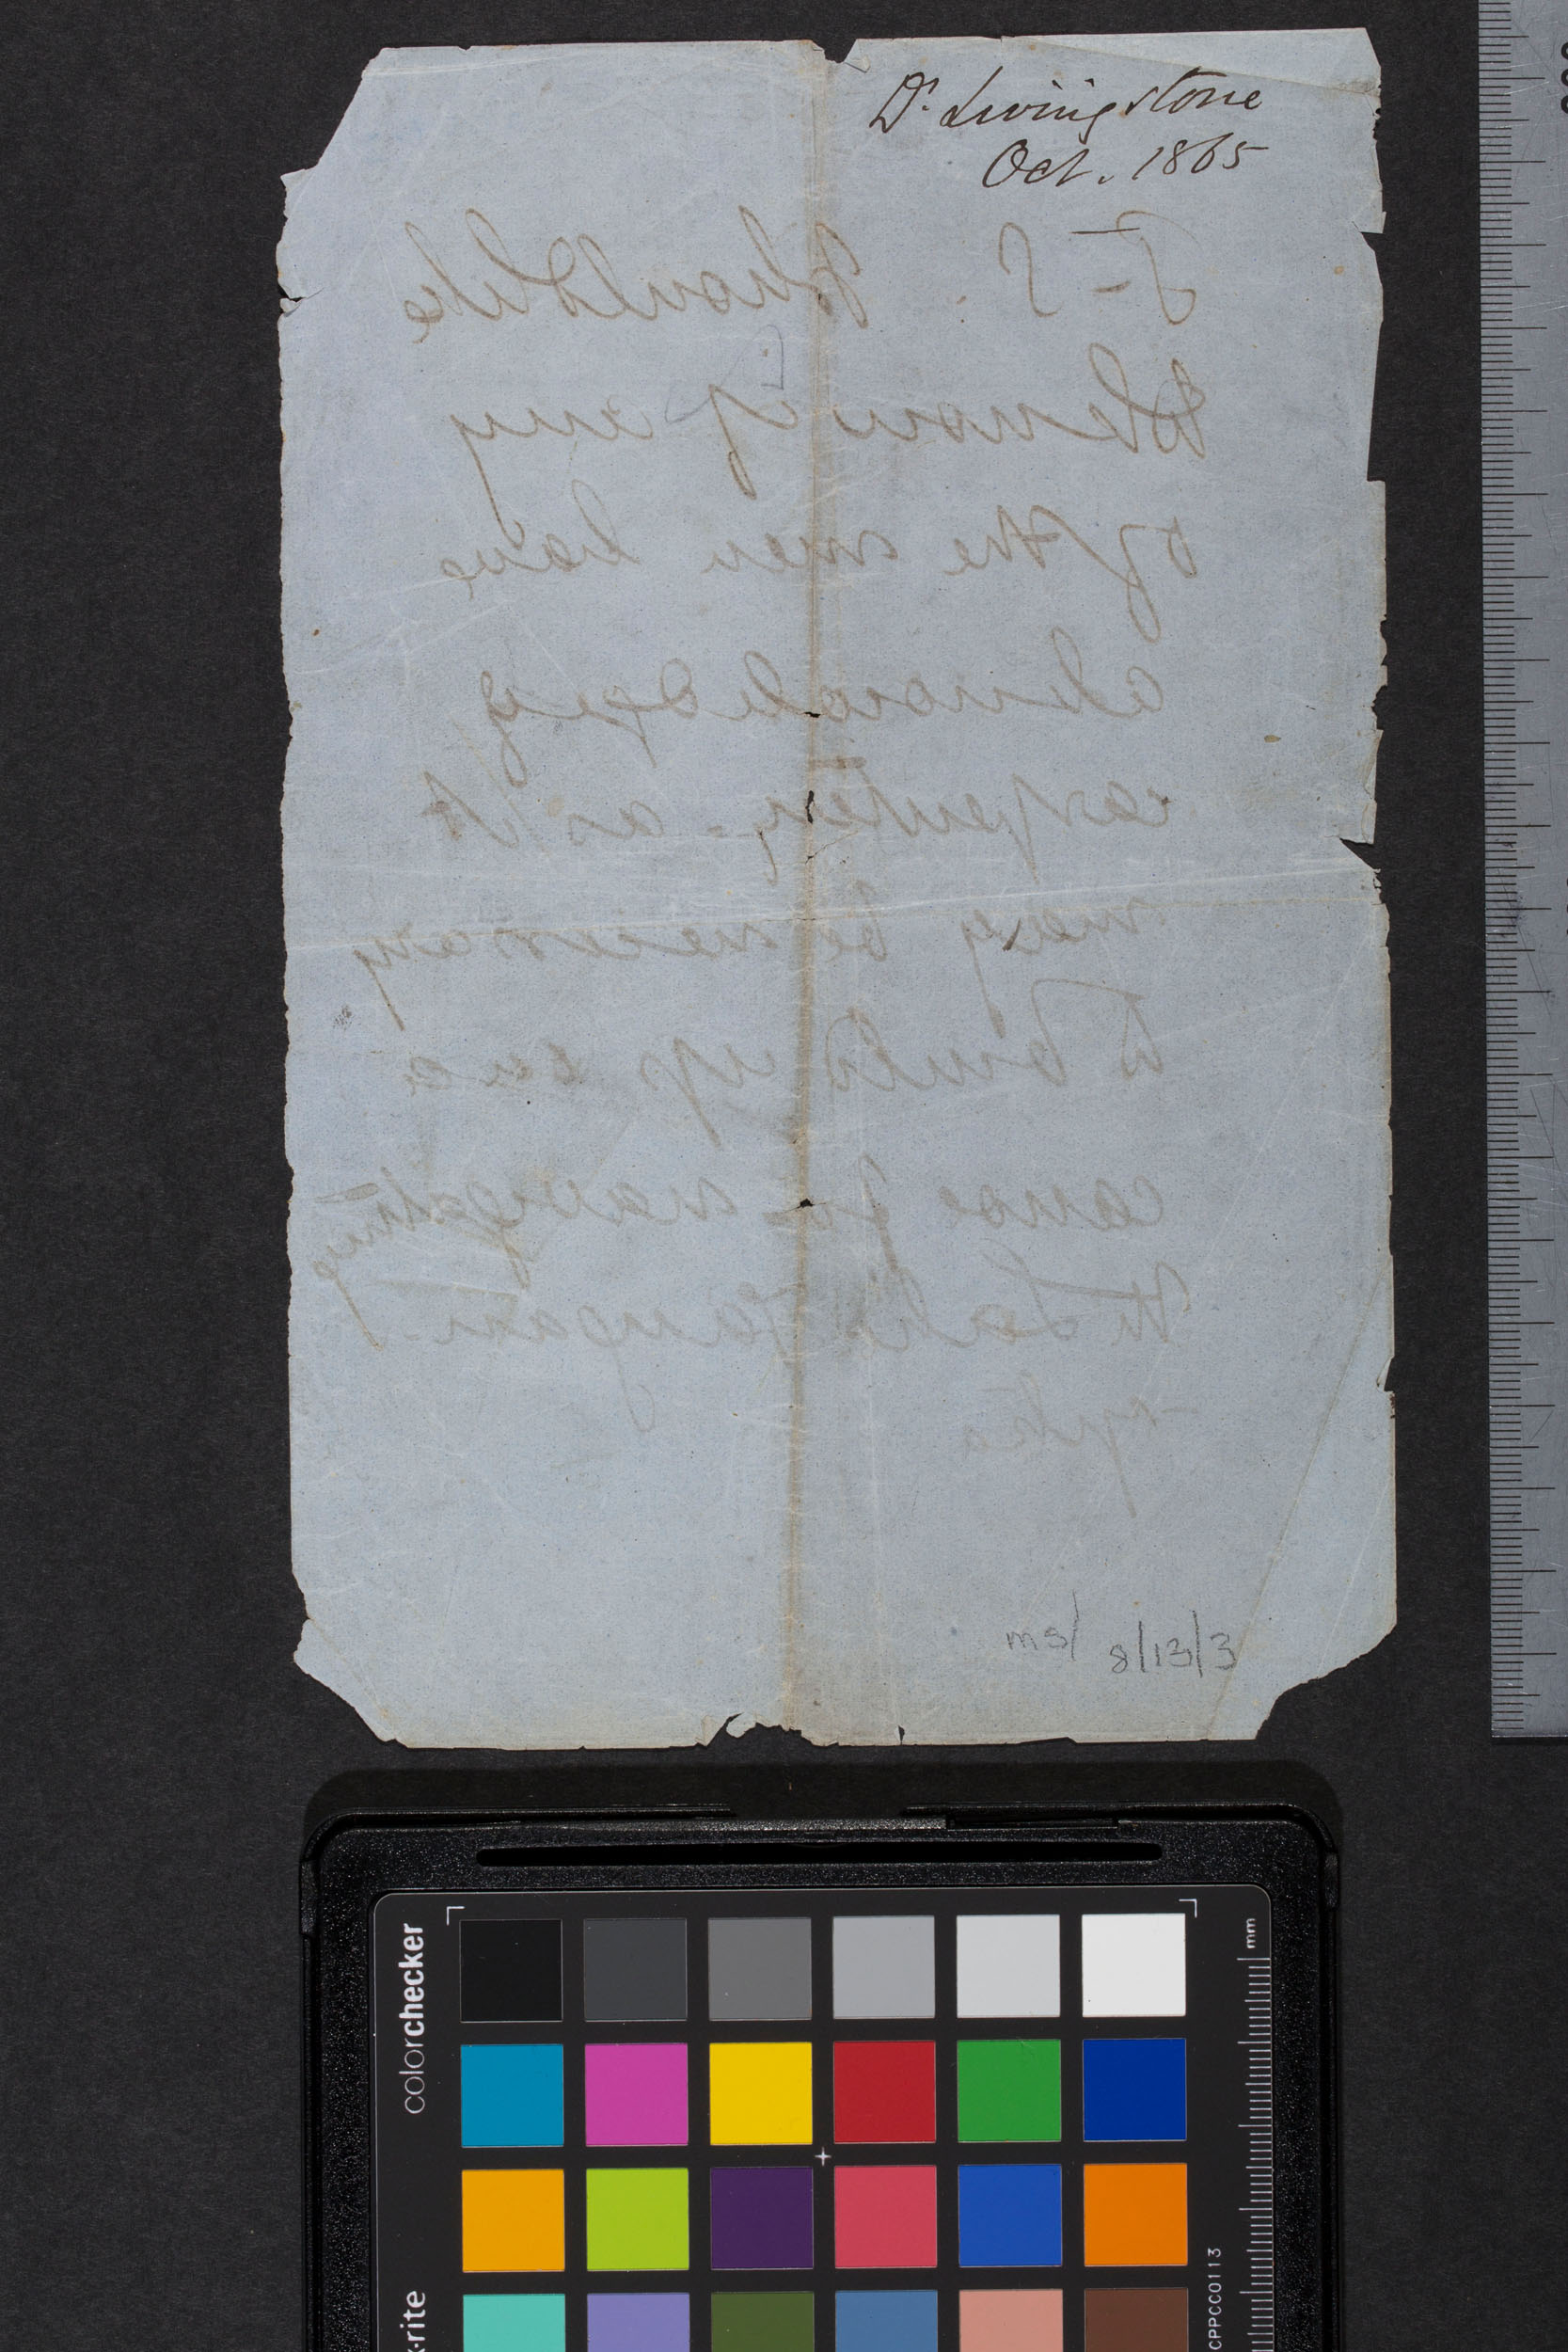 Dr. Livingstone
Oct. 1865
P-S. I should like
to know if any
of the men have
a knowledge of
carpentery - as it
may be necessary
to build up one
canoe for navigating
the Lake Tangan-
-yika
ms/ 8/13/3
colorchecker
mm
x-rite
CPPCC0113